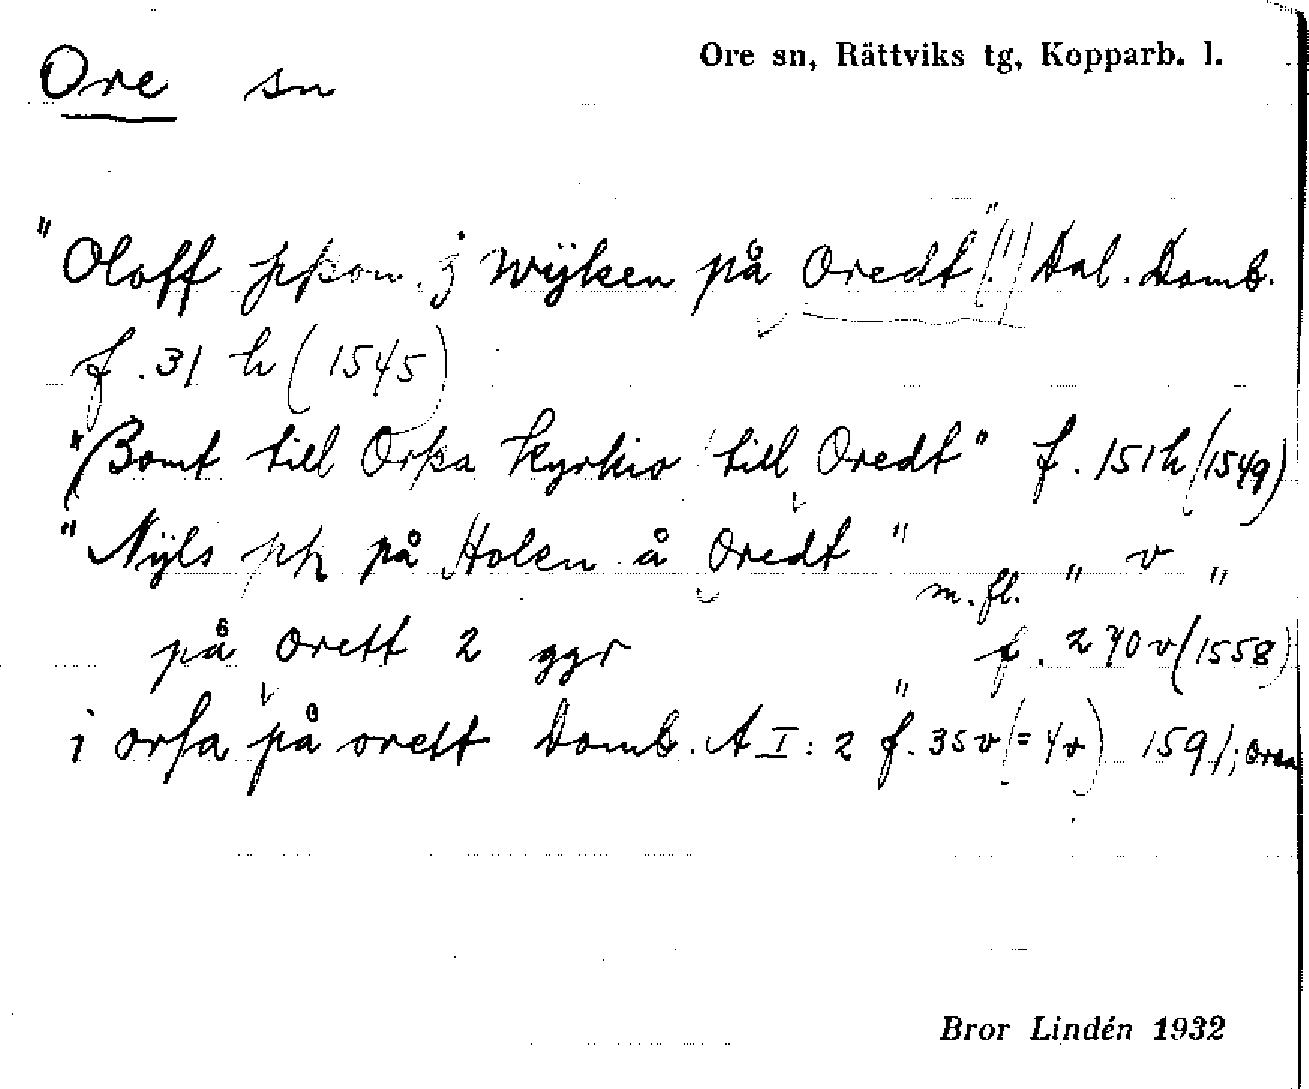 Ore sn
Ore sn, Rättviks tg, Kopparb. l.
"Oloff j wÿken på Oredt" (!) Dal. Domb.
f. 31 h (1545)
"Bomt till Orsa kyrkio till Oredt" f. 151 h (1549)
"Nÿls på Holen å Oredt" m. fl. " v "
på orett 2 ggr f. 270 v (1558)
i orsa på orett Domb. A I: 2 f. 35 v (= 4v) 1591; orea
Bror Lindén 1932